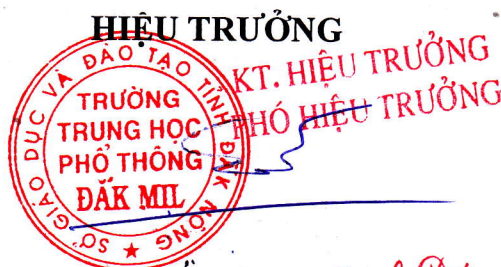 HIỆU TRƯỞNG
KT. HIỆU TRƯỞNG
PHÓ HIỆU TRƯỞNG
SỞ GIÁO DỤC VÀ ĐÀO TẠO TỈNH ĐĂK NÔNG
TRƯỜNG
TRUNG HỌC
PHỔ THÔNG
ĐĂK MIL